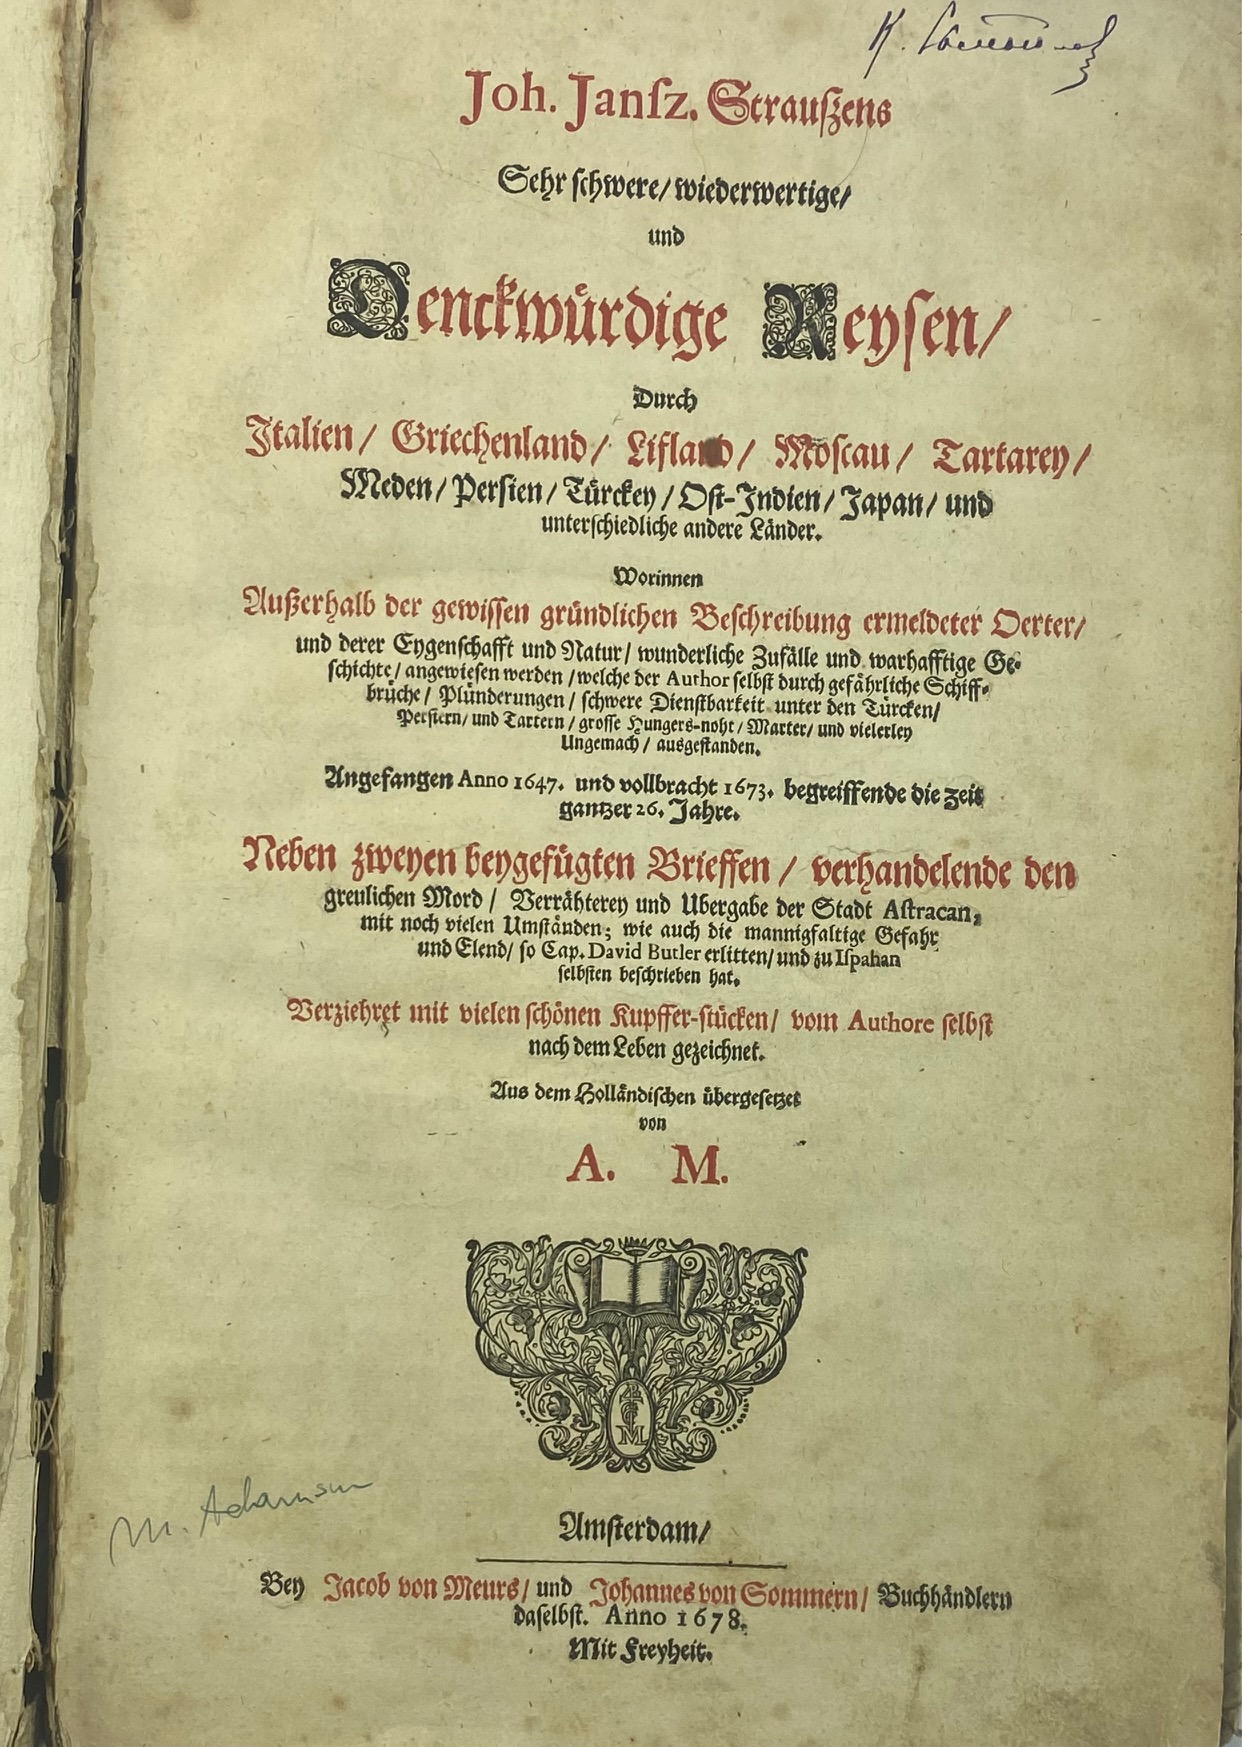 Joh. Janſz. Strauſzens
Sehr ſchwere/ wiederwertige/
und
Denckwürdige Reyſen/
Durch
Italien/ Griechenland/ Lifland/ Moſcau/ Tartarey/
Meden/ Perſien/ Türckey/ Oſt-Indien/ Japan/ und
unterſchiedliche andere Länder.
Worinnen
Außerhalb der gewiſſen gründlichen Beſchreibung ermeldeter Oerter/
und derer Eygenſchafft und Natur/ wunderliche Zufälle und warhafftige Ge-
ſchichte/ angewieſen werden/ welche der Author ſelbſt durch gefährliche Schiff-
brüche/ Plünderungen/ ſchwere Dienſtbarkeit unter den Türcken/
Perſiern/ und Tartern/ groſſe Hungers-noht/ Marter/ und vielerley
Ungemach/ ausgeſtanden.
Angefangen Anno 1647. und vollbracht 1673. begreiffende die zeit
gantzer 26. Jahre.
Neben zweyen beygefügten Brieffen/ verhandelende den
greulichen Mord/ Verrähterey und Ubergabe der Stadt Aſtracan,
mit noch vielen Umſtänden; wie auch die mannigfaltige Gefahr
und Elend/ ſo Cap. David Butler erlitten/ und zu Iſpahan
ſelbſten beſchrieben hat.
Verziehret mit vielen ſchönen Kupffer-ſtücken/ vom Authore ſelbſt
nach dem Leben gezeichnet.
Aus dem Holländiſchen übergeſetzet
von
A. M.
M
M. Adamson
Amſterdam/
Bey Jacob von Meurs/ und Johannes von Sommern/ Buchhändlern
daſelbſt. Anno 1678.
Mit Freyheit.